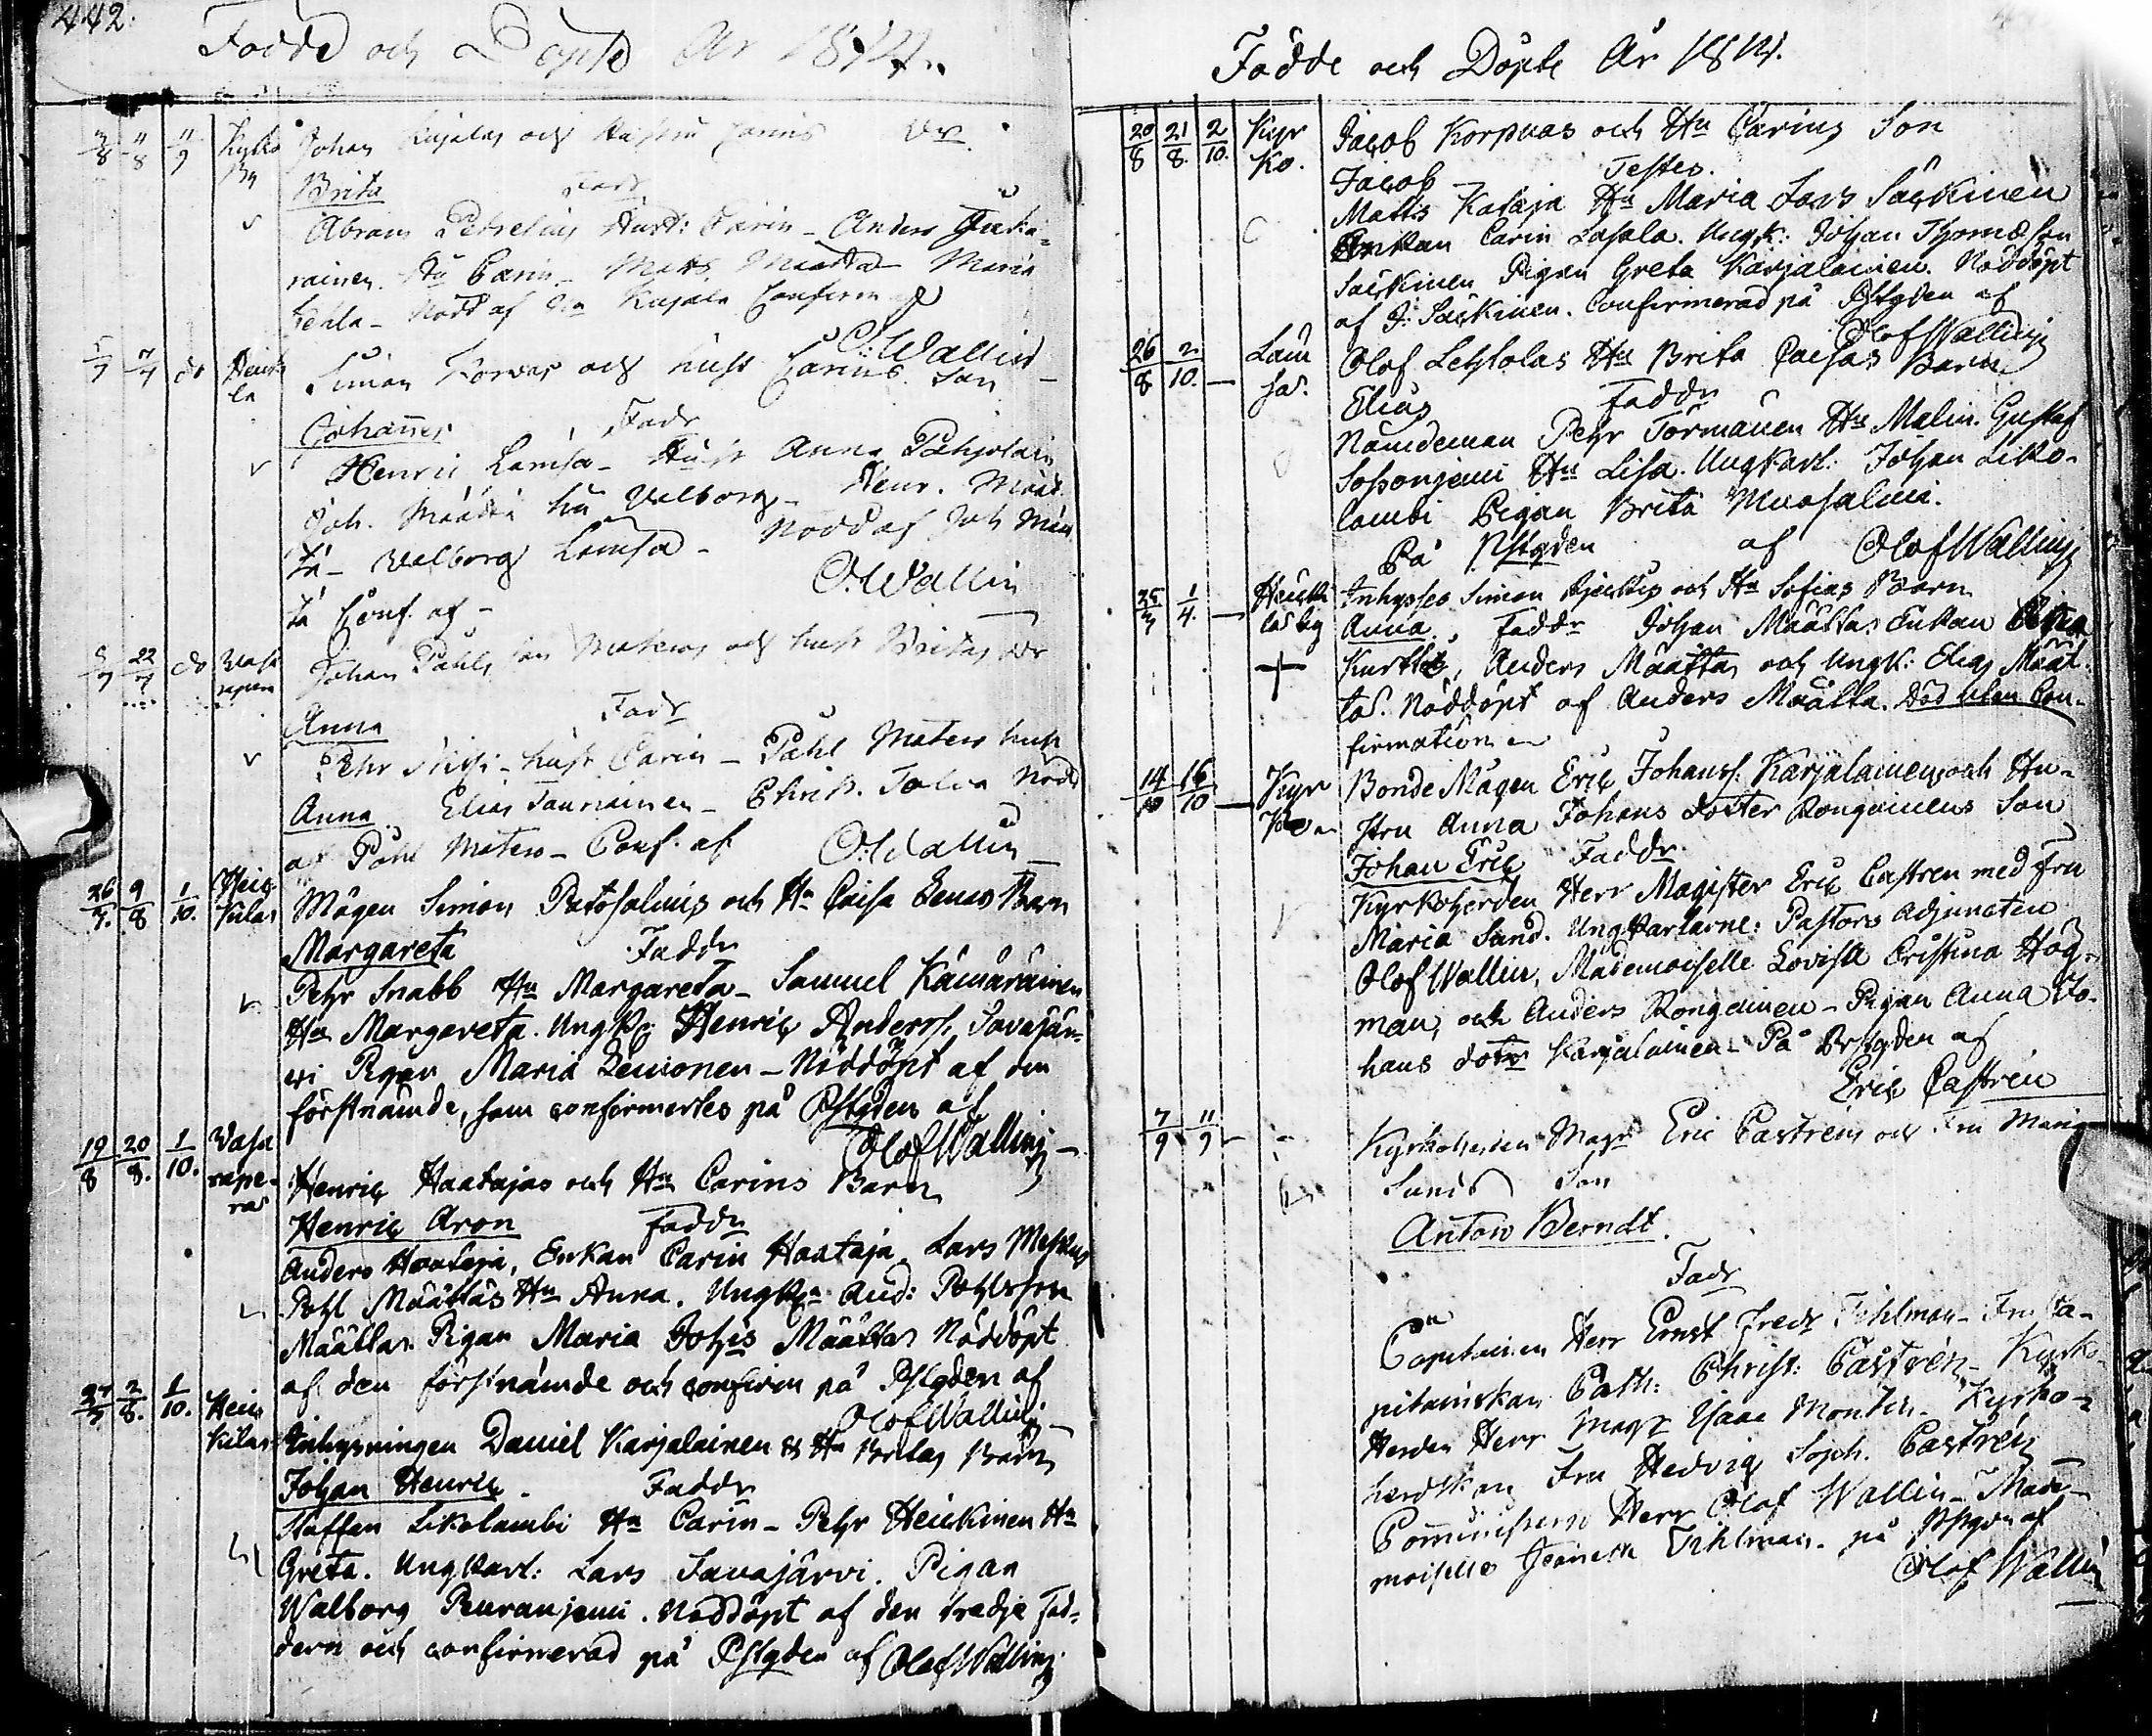 442.
Födde och Döpte År 1814.
3/8 4/8 11/9 Kyrko By Johan Kujalas och Hustru Carins Dr
Brita Fadr
Abram Petrelius Hust: Carin - Anders
rainen Hu Carin - Matts Määttä Maria
Nödd af Kujala Confirm af
O: Wallin
5/7 7/7 do Heick la Simon Korvas och hust Carins Son
Johannes Fadr
Henric Lamsa - Hust Anna
Joh. Määttä hu Valborg - Henr. Määt
tä - Walborg Lamsa - Nödd af Joh Mää
tä Conf. af - O. Wallin
22/7 do Johan Påhls son Maters och hust Britas Dr
Anna Fadr
Pehr hust Carin - Påhl Maters hust
Anna Elias Taurainen - Christ. Nödd
af Påhl Maters - Conf. af O. Wallin
26/7. 9/8 1/10. Heic Kilas Mågen Simon Patosalmis och Hu Caisa Barn
Margareta Faddr
Pehr Snabb Hu Margareta - Samuel Kämäräinen
Hu Margareta. UngK: Henric Anderss. Javajär-
wi Pigan Maria Kemonen - Nöddöpt af den
förstnämde, som confirmertes på Pstgden af
Olof Wallin
19/8 20/8. 1/10. Henric Haatajas och Hu Carins Barn
Henric Aron Faddr
Anders Haataja, Enkan Carin Haataja. Lars
Pohl Määttäs Hu Anna. UngKn And: Pohlsson
Määttas Pigan Maria Johis Määttas Nöddöpt
af den förstnämde och confirm på Pstgden af
Olof Wallin
27/7 2/8. 1/10. Heic Kilas Inhysningen Daniel Karjalainen & Hu Britas Barn
Johan Henric. Faddr
Staffan Likolambi Hu Carin - Pehr Heickinen Hu
Greta. UngKarl: Lars Javajärvi. Pigan
Walborg Puranjemi. Nöddöpt af den tredje Fad-
dern och confirmerad på Pstgden af Olof Wallin
Födde och Döpte År 1814.
20/8 21/8. 2/10. Kyr Ko. Jacob Korpuas och Hu Carins Son
Jacob Testes.
Matts Kataja Hu Maria Lars Säckinen
Enkan Carin Lasala. UngK: Johan Thomæson
Säckinen Pigan Greta Karjalainen. Nöddöpt
af J: Säckinen. Confirmerad på Pstgden af
Olof Wallin
26/8 2/10. — Lam sas. Olof Lehtolas Hu Brita Caisas Barn
Elias Faddr
Nämdeman Pehr Törmänen Hu Malin. Gustaf
Hu Lisa. UngKarl: Johan Liko-
lambi Pigan Brita Muosalmi.
På Pstgden af Olof Wallin
25/3 1/4. — Inhyses Simon och Hu Sofias Barn
Anna. Faddr Johan Määttas Enkan
Anders Määttas och UngK: Elias Määt
tas. Nöddöpt af Anders Määtta. Död utan Con-
firmation
14/10 16/10 — Kyr Ko Bonde Mågen Eric Johanss. Karjalainens och Hu-
stru Anna Johans doter Rongainens Son
Johan Eric Faddr
Kyrkoherden Herr Magister Eric Castren med Fru
Maria Sund. UngKarlarne: Pastors Adjuncten
Olof Wallin, Mademoiselle Lovisa Cristina Hög-
man, och Anders Rongainen - Pigan Anna Jo-
hans doter Karjalainen - På Pstgden af
Eric Castrén
7/9 11/9 - Kyrkoherden Magr Eric Castrens och Fru Maria
Sunds Son
Anton Berndt.
Fadr
Capitainen Herr Ernst Fredr Fihlman - Fru Ca-
pitainskan Cath: Christ: Castrén - Kyrko-
Herden Herr Magr Isaac Monten - Kyrko-
herdskan Fru Hedvig Soph. Castrén
Comministern Herr Olof Wallin - Made-
moiselle Fihlman. på Pstgden af
Olof Wallin